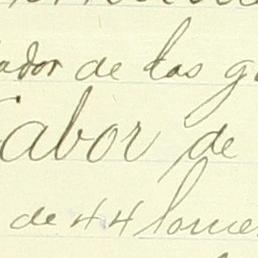 ador de las g
Labor de
de 44 lome